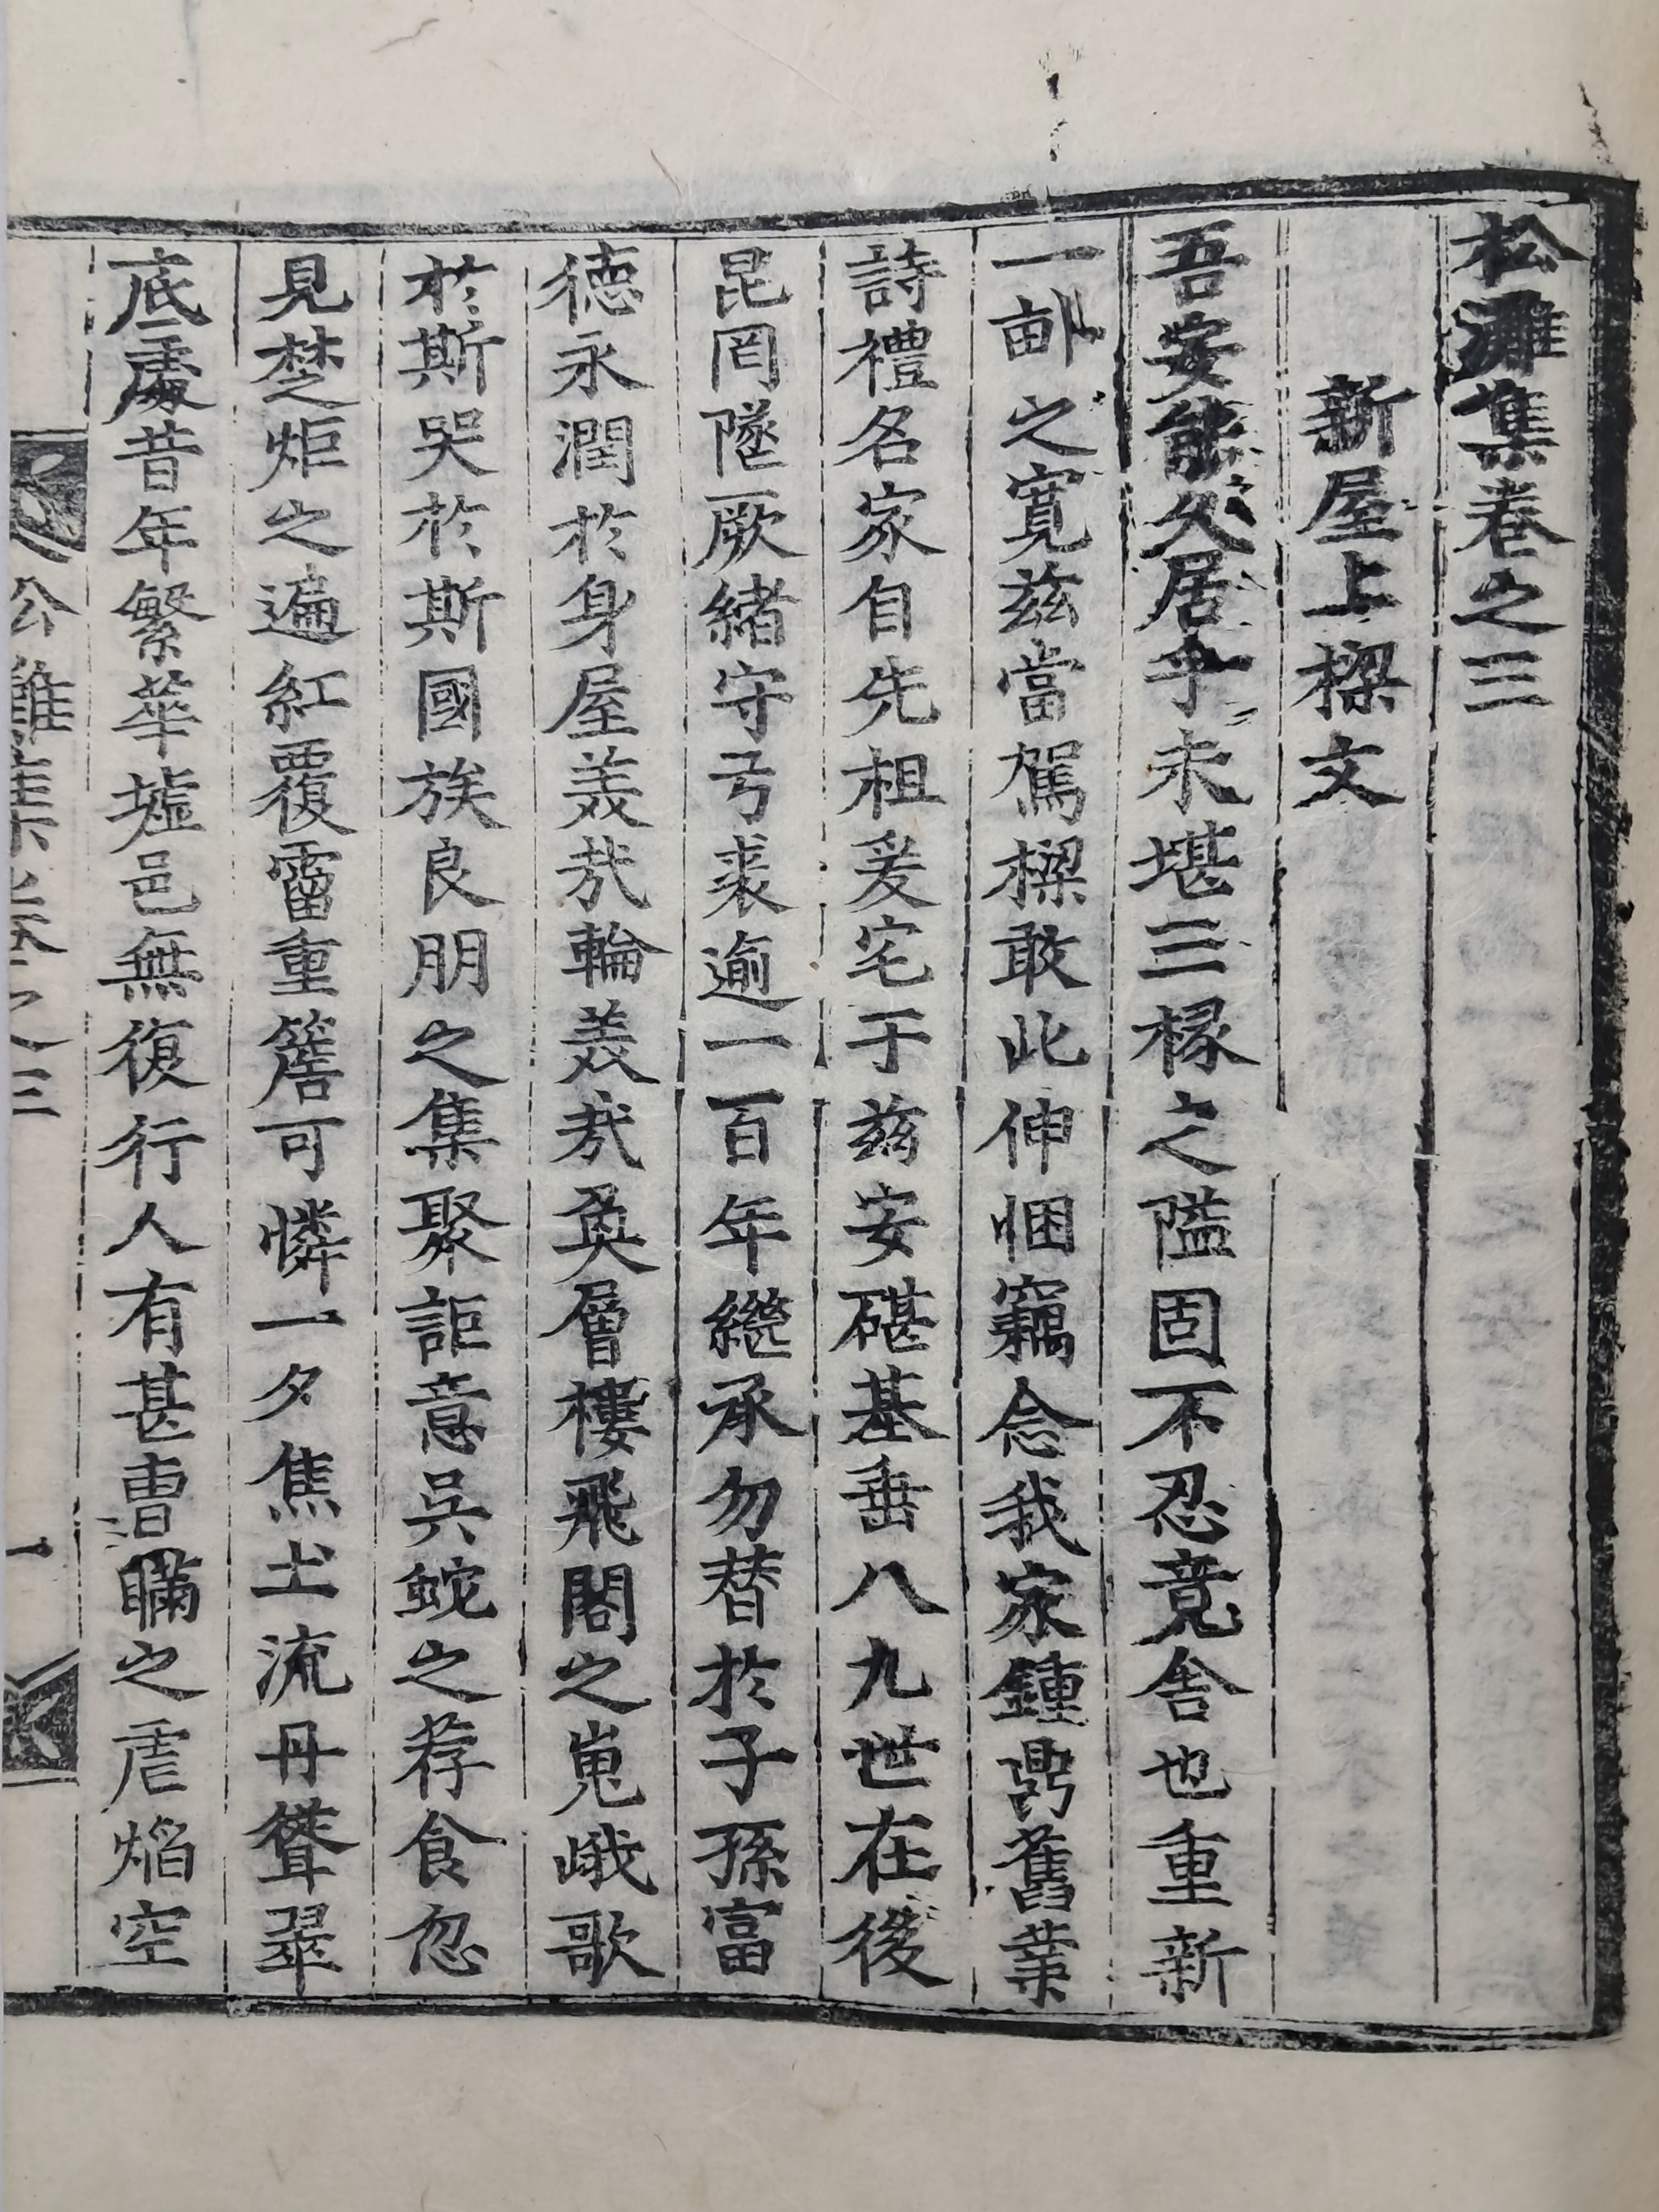 松灘集卷之三
新屋上樑文
吾安能久居乎未堪三椽之隘固不忍竟舍也重新
一畝之寬玆當駕樑敢此伸悃竊念我家鍾鼎舊業
詩禮名家自先祖爰宅于玆安磪基垂八九世在後
昆罔墜厥緖守弓裘逾一百年繼承勿替於子孫富
德永潤於身屋美哉輪美哉奐層樓飛閣之嵬峨歌
於斯哭於斯國族良朋之集聚詎意吳蛇之荐食忽
見楚炬之遍紅覆霤重簷可憐一夕焦土流丹聳翠
底處昔年繁華墟邑無復行人有甚曹瞞之虐焰空
松灘集卷之三 一